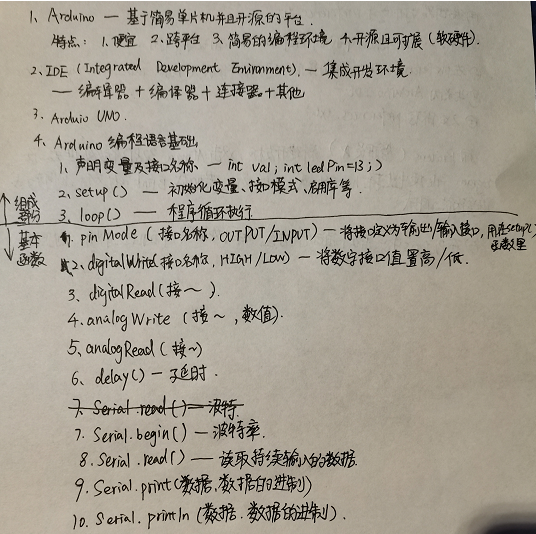 1、Arduino — 基于简易单片机并且开源的平台.
特点: 1.便宜 2.跨平台 3.简易的编程环境 4.开源且可扩展(软硬件).
2、IDE (Integrated Development Environment). — 集成开发环境
—— 编辑器 + 编译器 + 连接器 + 其他
3. Arduio UNO.
4. Arduino 编程语言基础
1. 声明变量及接口名称 — int val; int ledPin=13;)
2. setup() — 初始化变量、接口模式、启用库等.
3. loop() — 程序循环执行
↑ 组成部分
↓ 基本函数
1. pinMode (接口名称, OUTPUT/INPUT) — 将接口定义为输出/输入接口, 用在setup()函数里
2、digitalWrite(接口名称, HIGH/LOW) — 将数字接口值置高/低.
3. digitalRead(接~).
4. analogWrite (接~, 数值).
5、analogRead(接~)
6、delay() — 延时.
7. Serial.read() — 波特.
7. Serial.begin() — 波特率.
8. Serial.read() — 读取持续输入的数据.
9. Serial.print(数据, 数据的进制)
10. Serial.println (数据. 数据的进制).